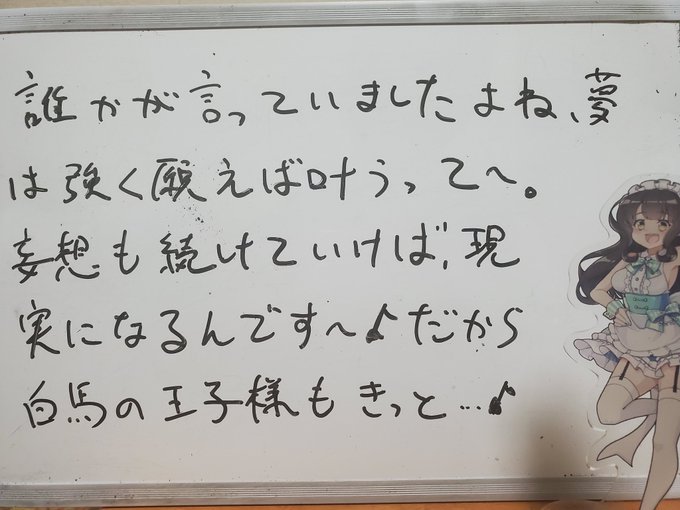 誰かが言っていましたよね、夢
は強く願えば叶うって〜。
妄想も続けていけば、現
実になるんです〜♪だから
白馬の王子様もきっと…♪